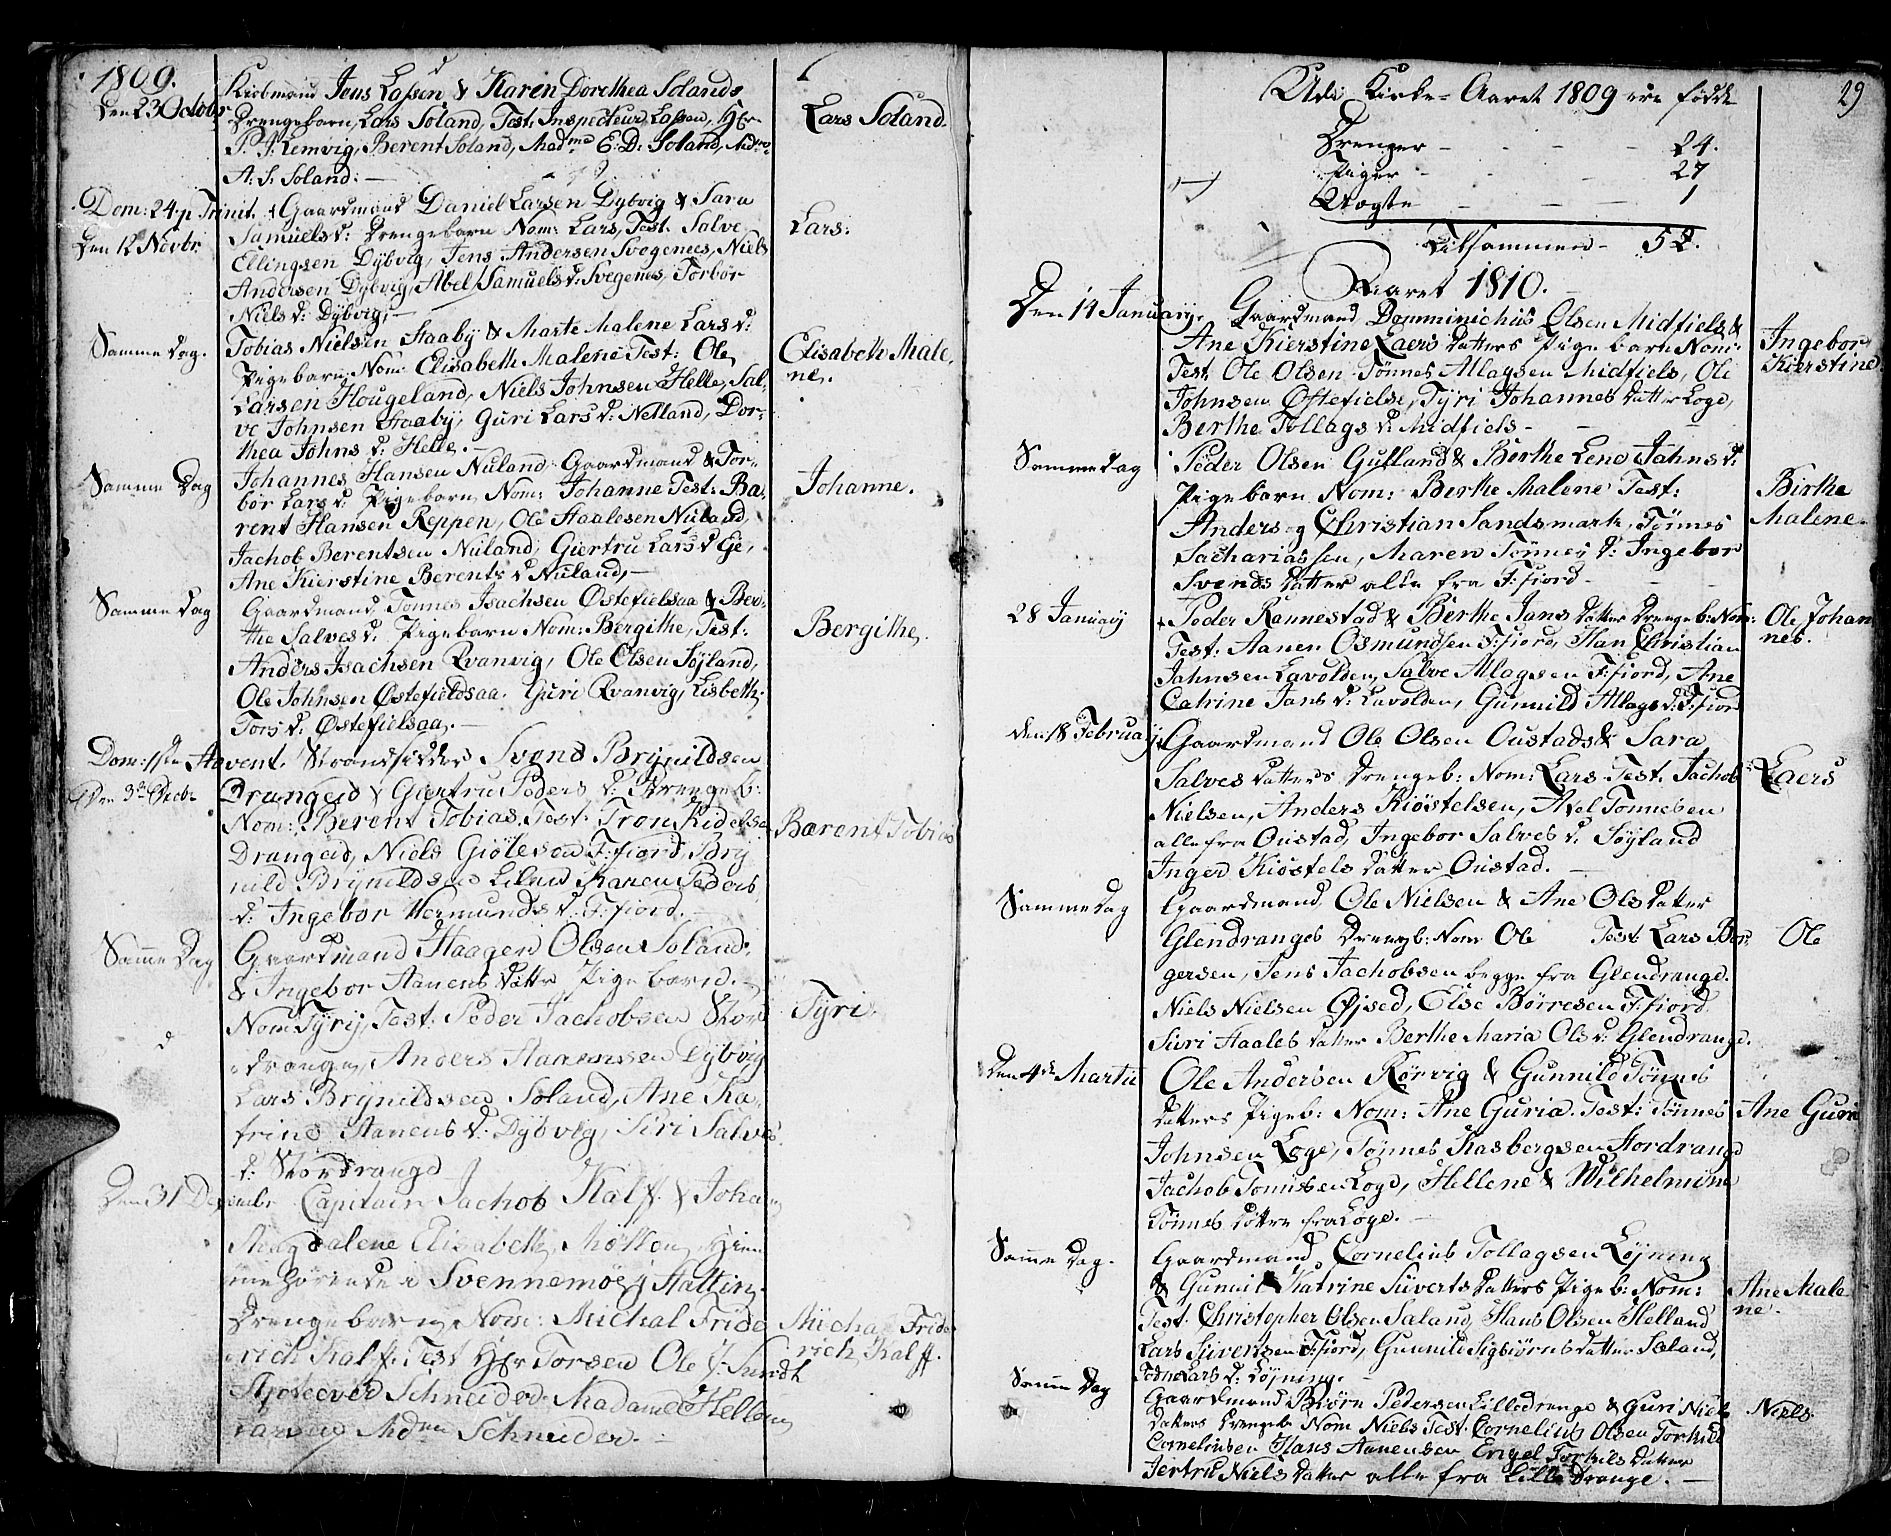 1809.
Den 23 Octobr
Kiøbmand Jens Lassen & Karen Dorethea Solands
Drengebarn, Lars Soland, Test: Inspecteur Lassen, Hr.
P. J. Lemvig, Berent Soland, Madme E. D. Soland, Mdme
A. S. Soland. —
Lars Soland.
Dom: 24 p Trinit.
Den 12 Novbr.
Gaardmand Daniel Larsen Dybvig & Sara
Samuels d: Drengebarn Nom: Lars, Test. Salve
Ellingsen Dybvig, Jens Andersen Svegenes, Niels
Andersen Dybvig, Abel Samuels d: Svegenes, Torbor
Niels d: Dybvig, —
Lars:
Samme Dag.
Tobias Nielsen Staaby & Marte Malene Lars d:
Pigebarn Nom: Elisabeth Malene Test: Ole
Larsen Hougeland, Niels Johnsen Helle, Sal-
ve Johnsen Staaby, Guri Lars d: Netland, Dor-
thea Johns d: Helle. —
Elisabeth Male-
ne.
Samme Dag
Johannes Hansen Nuland Gaardmand & Tor-
bor Lars d. Pigebarn, Nom: Johanne Test: Ba-
rent Hansen Reppen, Ole Staalesen Nuland,
Jachob Berentsen Nuland, Giertru Lars d Eie,
Ane Kierstine Berents d Nuland, —
Johanne.
Samme Dag
Gaardmand Tønnes Isachsen Østefielsaa & Ber-
the Salves d. Pigebarn Nom: Bergithe, Test:
Anders Isachsen Qvanvig, Ole Olsen Føyland,
Ole Johnsen Østefieldsaa. Guri Qvanvig, Lisbeth
Tors d: Østefielsaa. —
Bergithe.
Dom: 1ste Advent.
Den 3de Decbr
Strandsidder Svend Brynildsen
Drangeid & Giertru Peders d: Drengeb:
Nom: Berent Tobias, Test. Tron Kidelsen
Drangeid, Niels Giølesen F:fiord, Bry
nild Brynildsen Liland Karen Peders
d: Ingebor Vermunds d: F:fiord.
Barent Tobias
Samme Dag
Gaardmand Haagen Olsen Soland:
& Ingebor Aanens Datter Pigebarn. —
Nom Tyri, Test: Peder Jachobsen Stor
drange, Anders Aanenssen Dybvig
Lars Brynildsen Soland, Ane Ka-
trine Aanens d: Dybvig, Siri Salves
d: Stordrange
Tyri.
Den 31 Decembr
Capitain Jachob Kalff & Johan
Magdalene Elisabeth Møllen, Hiem
me hørende i Svennemoe i Staltin
Drengebarn Nom: Michal Fride
rich Kalff. Test Hr Torsen Ole J. Sundt
Schneider Madame Hellen
Mdm Schneider. —
Micha Fride
rich Kalff.
29
Udi Kirke-Aaret 1809 ere fødde
Drenger - - - - 24.
Piger - - - - 27
Uægte - - - - 1
Tilsammen - 52.
Aaret 1810.
Den 14 January.
Gaardmand Domminichus Olsen Midfiels &
Ane Kierstine Laers Datters Pigebarn Nom:
Test. Ole Olsen Tønnes Allagsen Midfiels, Ole
Johnsen Østefielse, Tyri Johannes Datter Loge,
Berthe Tollags d. Midfiels -
Ingebor
Kierstine
Samme Dag
Peder Olsen Gulland & Berthe Lena Jahns d:
Pigebarn Nom: Berthe Malene Test:
Anders og Christian Sandsmark, Tønnes
Sachariassen, Maren Tønnes d: Ingebor
Svends Datter alle fra F:fiord -
Birthe
Malene.
28 January
Peder Rannestad & Berthe Jans Datter Drengeb: Nom:
Test. Aanen Osmundsen F:fiord, Han Christian
Jahnsen Lavolden, Salve Allagsen F:fiord, Ane
Catrine Jans d: Lavolden, Gunnild Allags d: F:fiord
Ole Johan
nes.
den 18 February
Gaardmand Ole Olsen Oustads & Sara
Salves Datters Drengeb: Nom: Lars Test. Jachob
Nielsen, Anders Kiøstelsen, Axel Tønnesen
alle fra Oustad, Ingebor Salves d. Føyland
Inger Kiøstels Datter Oustad. —
Laers
Samme Dag
Gaardmand Ole Nielsen & Ane Ols Datter
Glendranges Drengb: Nom Ole Test Lars Bør-
gersen, Jens Jachobsen begge fra Glendrange.
Niels Nielsen Øjsed, Else Børresen F:fiord
Siri Staales Datter Berthe Maria Ols d: Glendrange.
Ole
Den 4de Martii
Ole Andersen Rørvig & Gunnild Tønnes
Datters Pigeb: Nom: Ane Guria. Test: Tønnes
Johnsen Loge, Tønnes Kasbergsen Stordrange
Jachob Tønnesen Loge, Hellene & Wilhelmine
Tønnes Døttre fra Loge. —
Ane Guri
Samme Dag.
Gaardmand Cornelius Tollagsen Løjning
& Gunnil Katrine Siverts Datters Pigeb: Nom:
Test. Christopher Olsen Saland, Hans Olsen Helland
Lars Siversen F:fiord, Gunnild Sigbiørns Datter Saland,
Lars d: Løjning. —
Ane Male
ne.
Samme Dag
Gaardmand Biørn Pedersen Lilledrange & Guri Niels
Datters Drengeb Nom Niels Test. Cornelius Olsen Torkild
Corneliusen Hans Aanensen Engel Torkils Datter
Jertru Niels Datter alle fra Lille Drange. —
Niels.